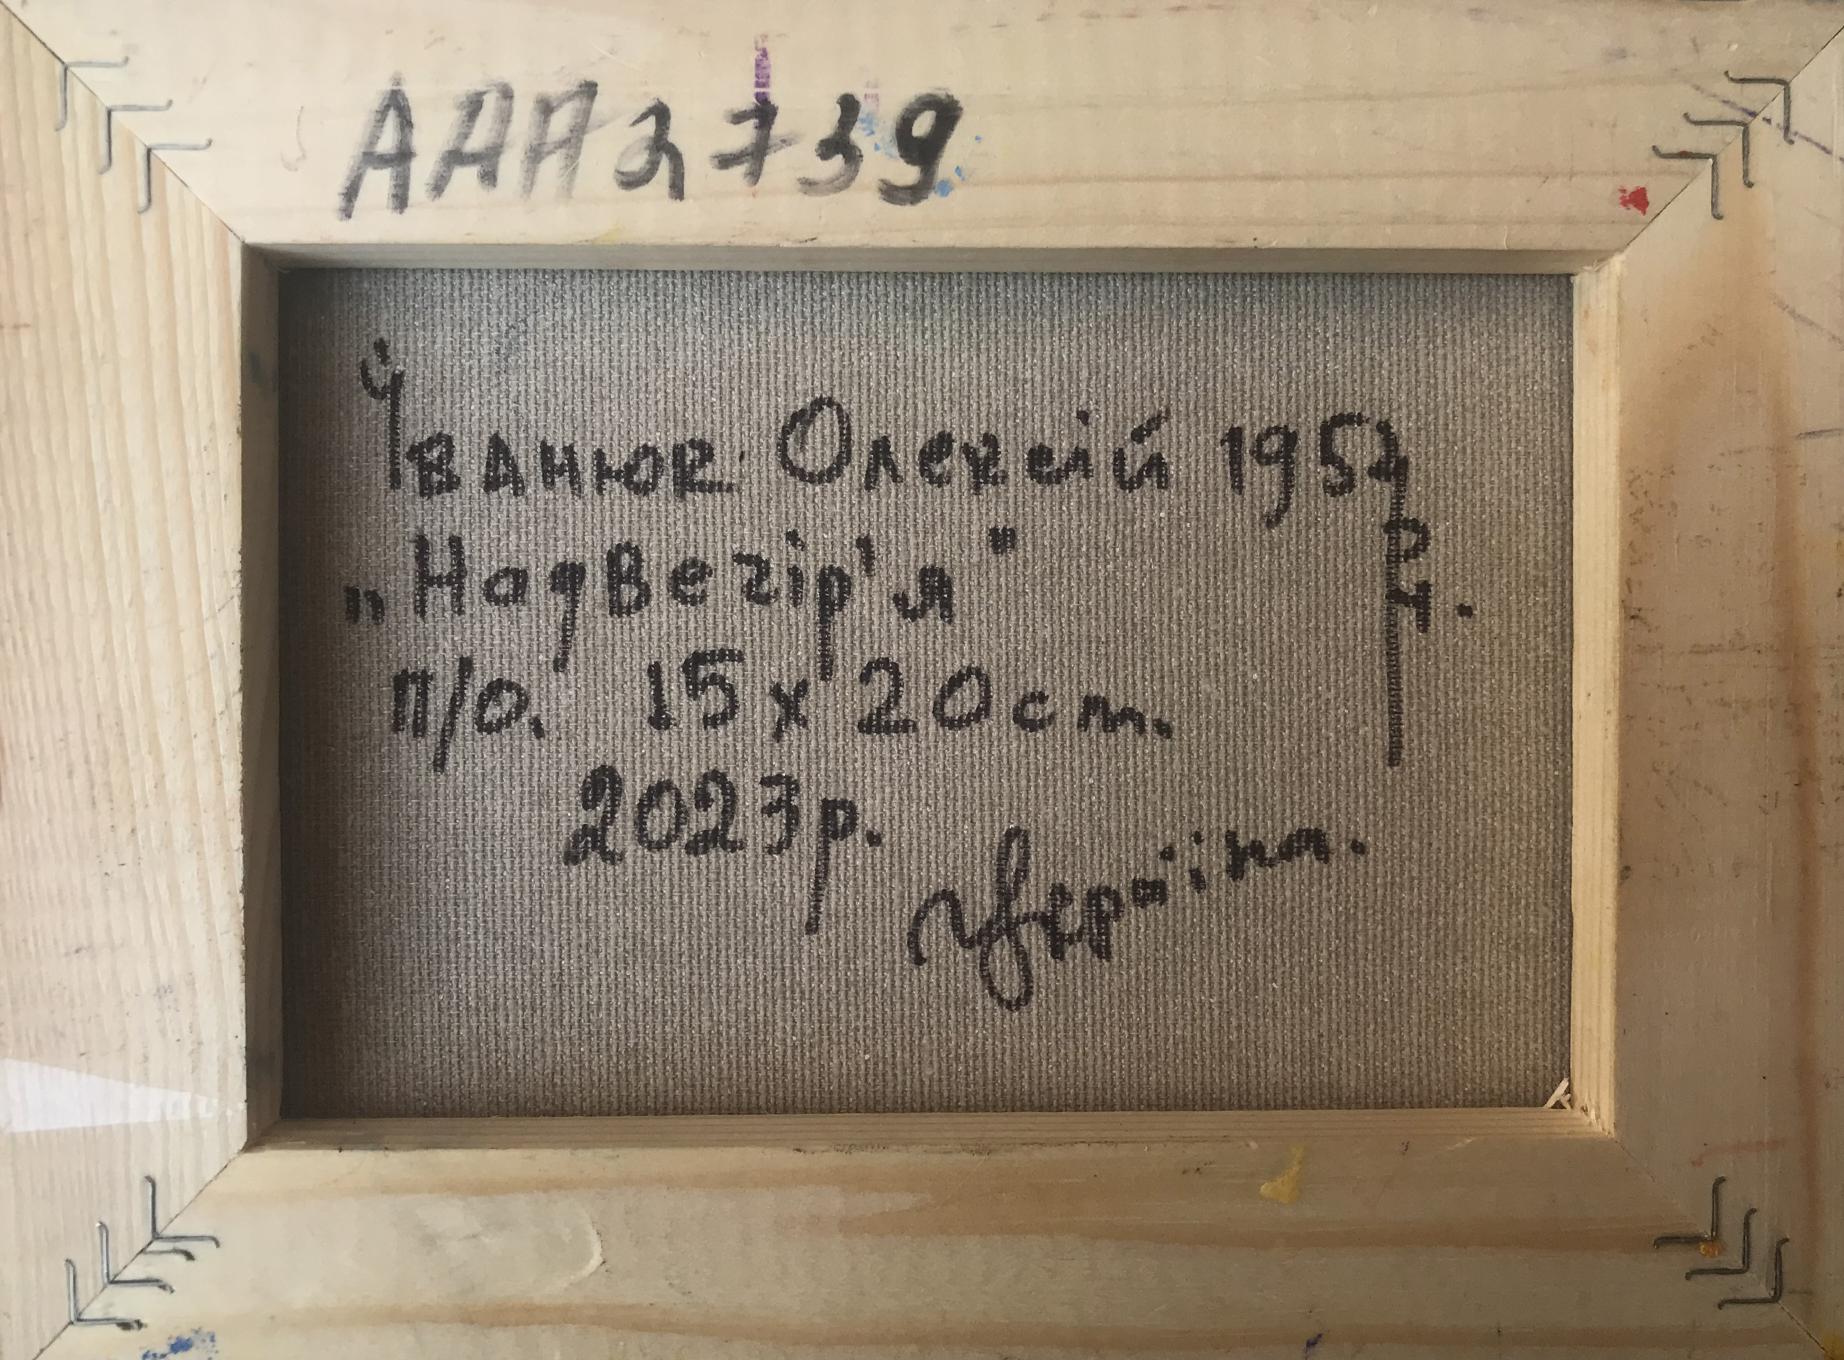 AAA2739
Іванюк Олексій 1957
„Надвечір'я"
п/о. 15 x 20 cm.
2023р.